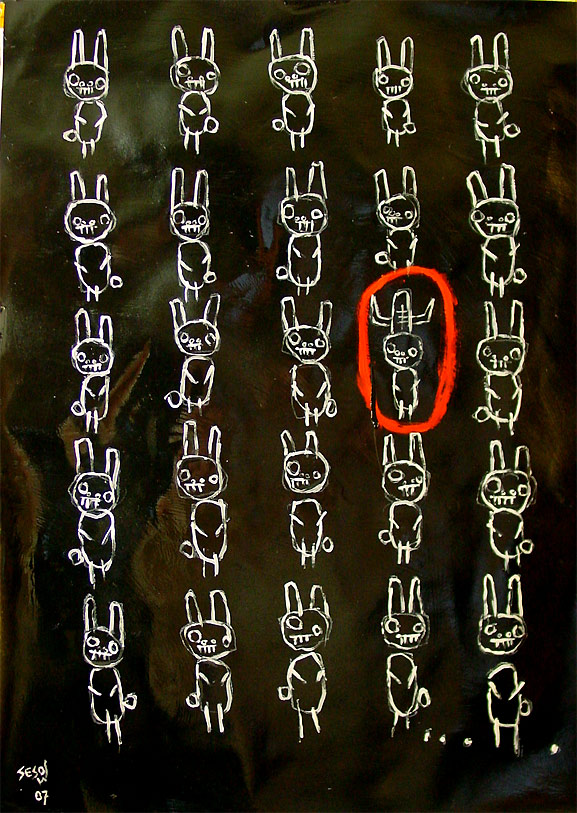 SESO
07